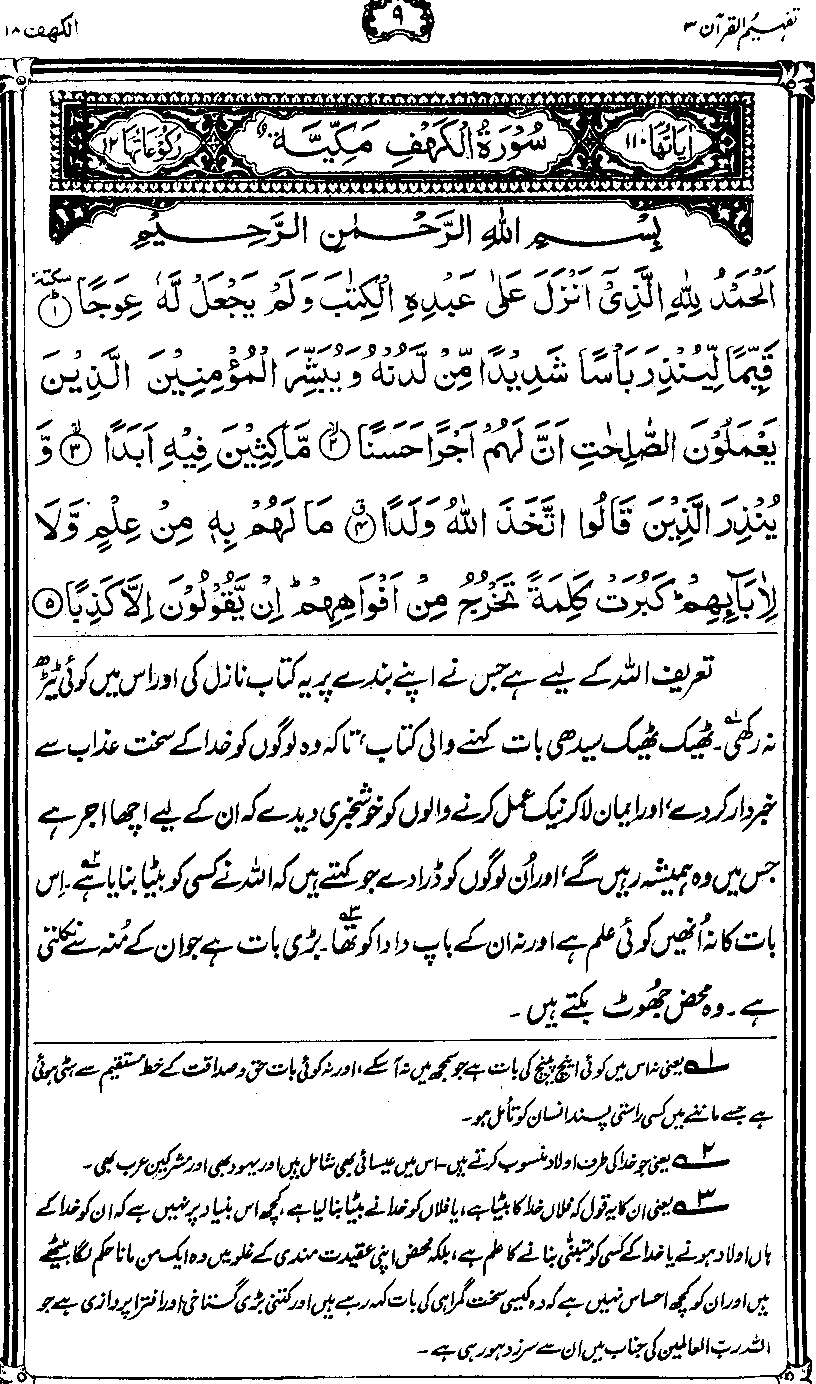 تفہیم القرآن ۳
۹
الکہف ۱۸
اٰیَاتُهَا ۱۱۰
سُوْرَةُ الْكَهْفِ مَكِّيَّةٌ
رُكُوْعَاتُهَا ۱۲
بِسْمِ اللهِ الرَّحْمٰنِ الرَّحِيْمِ
اَلْحَمْدُ لِلّٰهِ الَّذِيْۤ اَنْزَلَ عَلٰى عَبْدِهِ الْكِتٰبَ وَلَمْ يَجْعَلْ لَّهٗ عِوَجًا ﴿۱﴾ سكتة
قَيِّمًا لِّيُنْذِرَ بَاْسًا شَدِيْدًا مِّنْ لَّدُنْهُ وَيُبَشِّرَ الْمُؤْمِنِيْنَ الَّذِيْنَ
يَعْمَلُوْنَ الصّٰلِحٰتِ اَنَّ لَهُمْ اَجْرًا حَسَنًا ﴿۲﴾ مَّاكِثِيْنَ فِيْهِ اَبَدًا ﴿۳﴾ وَّ
يُنْذِرَ الَّذِيْنَ قَالُوا اتَّخَذَ اللهُ وَلَدًا ﴿۴﴾ مَا لَهُمْ بِهٖ مِنْ عِلْمٍ وَّلَا
لِاٰبَآئِهِمْ ؕ كَبُرَتْ كَلِمَةً تَخْرُجُ مِنْ اَفْوَاهِهِمْ ؕ اِنْ يَّقُوْلُوْنَ اِلَّا كَذِبًا ﴿۵﴾
تعریف اللہ کے لیے ہے جس نے اپنے بندے پر یہ کتاب نازل کی اور اس میں کوئی ٹیڑھ
نہ رکھی۱؎۔ ٹھیک ٹھیک سیدھی بات کہنے والی کتاب، تاکہ وہ لوگوں کو خدا کے سخت عذاب سے
خبردار کر دے، اور ایمان لا کر نیک عمل کرنے والوں کو خوشخبری دیدے کہ ان کے لیے اچھا اجر ہے
جس میں وہ ہمیشہ رہیں گے، اور اُن لوگوں کو ڈرا دے جو کہتے ہیں کہ اللہ نے کسی کو بیٹا بنایا ہے۲؎۔ اِس
بات کا نہ اُنھیں کوئی علم ہے اور نہ ان کے باپ دادا کو تھا۳؎۔ بڑی بات ہے جو ان کے مُنہ سے نکلتی
ہے۔ وہ محض جھوٹ بکتے ہیں۔
۱؎ یعنی نہ اس میں کوئی اینچ پینچ کی بات ہے جو سمجھ میں نہ آسکے، اور نہ کوئی بات حق و صداقت کے خطِ مستقیم سے ہٹی ہوئی
ہے جسے ماننے میں کسی راستی پسند انسان کو تأمل ہو۔
۲؎ یعنی جو خدا کی طرف اولاد منسوب کرتے ہیں۔ اس میں عیسائی بھی شامل ہیں اور یہود بھی اور مشرکینِ عرب بھی۔
۳؎ یعنی ان کا یہ قول کہ فلاں خدا کا بیٹا ہے، یا فلاں کو خدا نے بیٹا بنا لیا ہے، کچھ اس بنیاد پر نہیں ہے کہ ان کو خدا کے
ہاں اولاد ہونے یا خدا کے کسی کو متبنّٰی بنانے کا علم ہے، بلکہ محض اپنی عقیدت مندی کے غلو میں وہ ایک من مانا حکم لگا بیٹھے
ہیں اور ان کو کچھ احساس نہیں ہے کہ وہ کیسی سخت گمراہی کی بات کہہ رہے ہیں اور کتنی بڑی گستاخی اور افترا پردازی ہے جو
اللہ ربّ العالمین کی جناب میں ان سے سرزد ہو رہی ہے۔